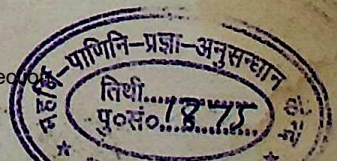 ection
महर्षि-पाणिनि-प्रज्ञा-अनुसन्धान
तिथी..............
पु०सं०..1875......